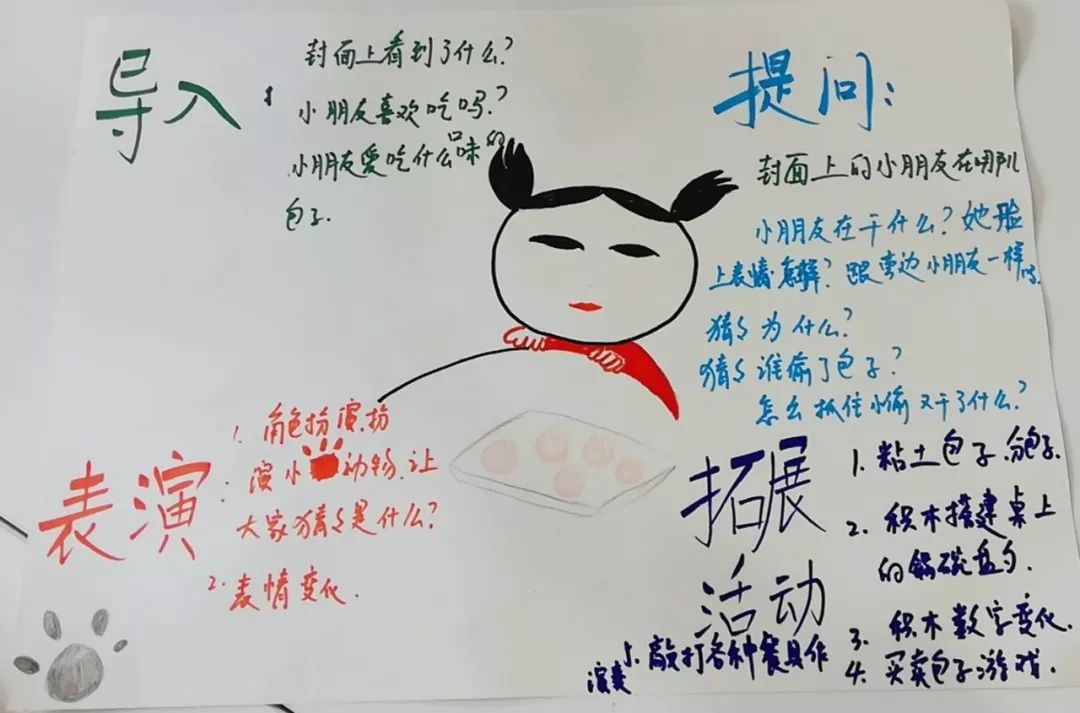 导入：
封面上看到了什么？
小朋友喜欢吃吗？
小朋友爱吃什么口味的
包子.
提问：
封面上的小朋友在哪儿
小朋友在干什么？她脸
上表情怎样？跟旁边小朋友一样吗.
猜々为什么？
猜々谁偷了包子？
怎么抓住小偷又干了什么？
表演：
1. 角色扮演.扮
演小动物.让
大家猜々是什么？
2. 表情变化.
拓展
活动
1. 粘土包子.包子.
2. 积木搭建桌上
的锅碗盘勺.
3. 积木数字变化.
4. 买卖包子游戏.
5. 敲打各种餐具作
演奏